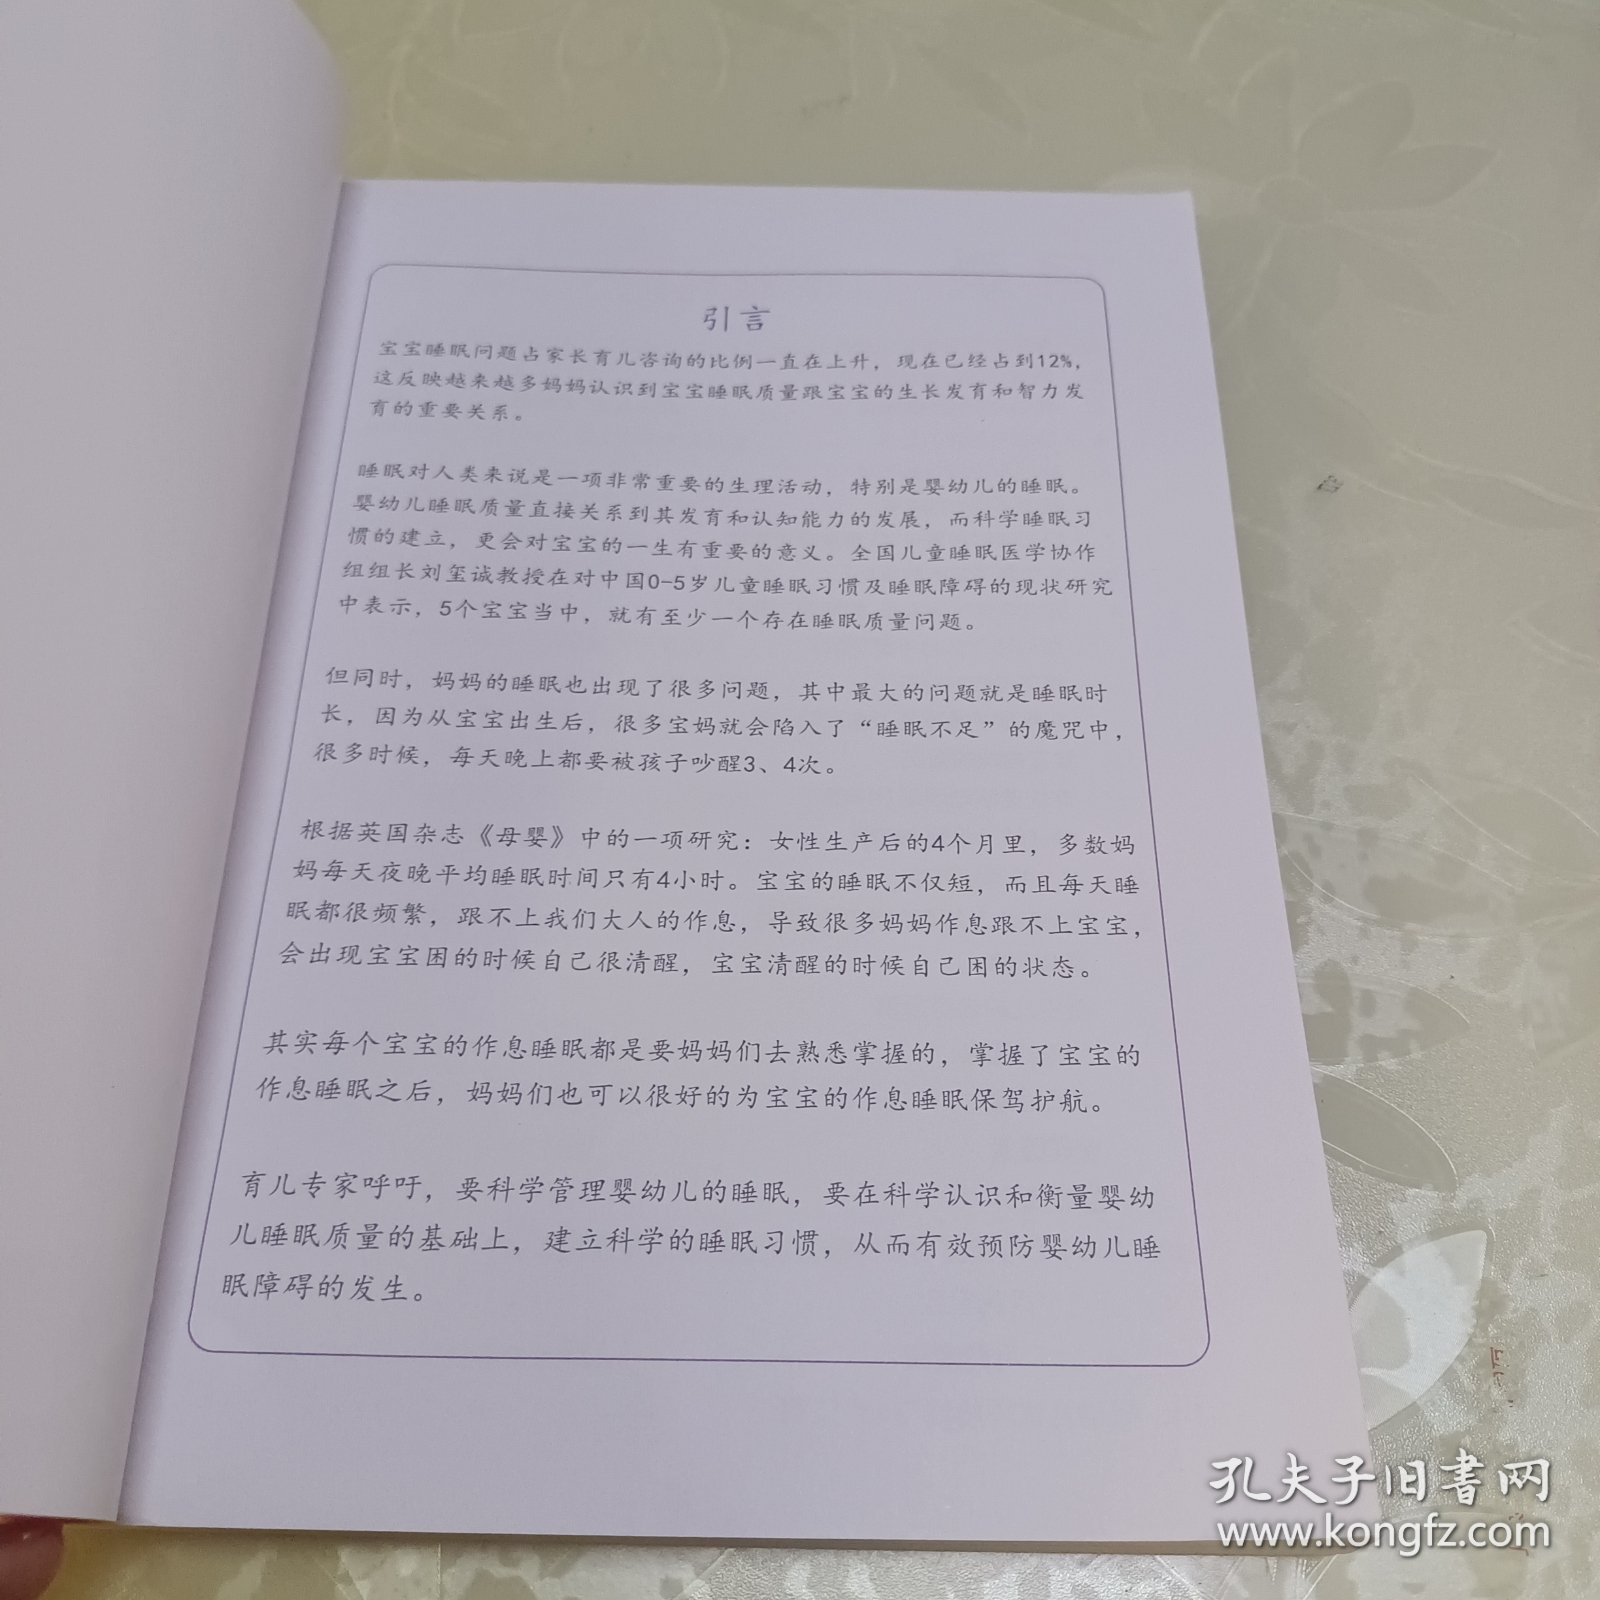 引言
宝宝睡眠问题占家长育儿咨询的比例一直在上升，现在已经占到12%，
这反映越来越多妈妈认识到宝宝睡眠质量跟宝宝的生长发育和智力发
育的重要关系。
睡眠对人类来说是一项非常重要的生理活动，特别是婴幼儿的睡眠。
婴幼儿睡眠质量直接关系到其发育和认知能力的发展，而科学睡眠习
惯的建立，更会对宝宝的一生有重要的意义。全国儿童睡眠医学协作
组组长刘玺诚教授在对中国0-5岁儿童睡眠习惯及睡眠障碍的现状研究
中表示，5个宝宝当中，就有至少一个存在睡眠质量问题。
但同时，妈妈的睡眠也出现了很多问题，其中最大的问题就是睡眠时
长，因为从宝宝出生后，很多宝妈就会陷入了“睡眠不足”的魔咒中，
很多时候，每天晚上都要被孩子吵醒3、4次。
根据英国杂志《母婴》中的一项研究：女性生产后的4个月里，多数妈
妈每天夜晚平均睡眠时间只有4小时。宝宝的睡眠不仅短，而且每天睡
眠都很频繁，跟不上我们大人的作息，导致很多妈妈作息跟不上宝宝，
会出现宝宝困的时候自己很清醒，宝宝清醒的时候自己困的状态。
其实每个宝宝的作息睡眠都是要妈妈们去熟悉掌握的，掌握了宝宝的
作息睡眠之后，妈妈们也可以很好的为宝宝的作息睡眠保驾护航。
育儿专家呼吁，要科学管理婴幼儿的睡眠，要在科学认识和衡量婴幼
儿睡眠质量的基础上，建立科学的睡眠习惯，从而有效预防婴幼儿睡
眠障碍的发生。
孔夫子旧书网
www.kongfz.com